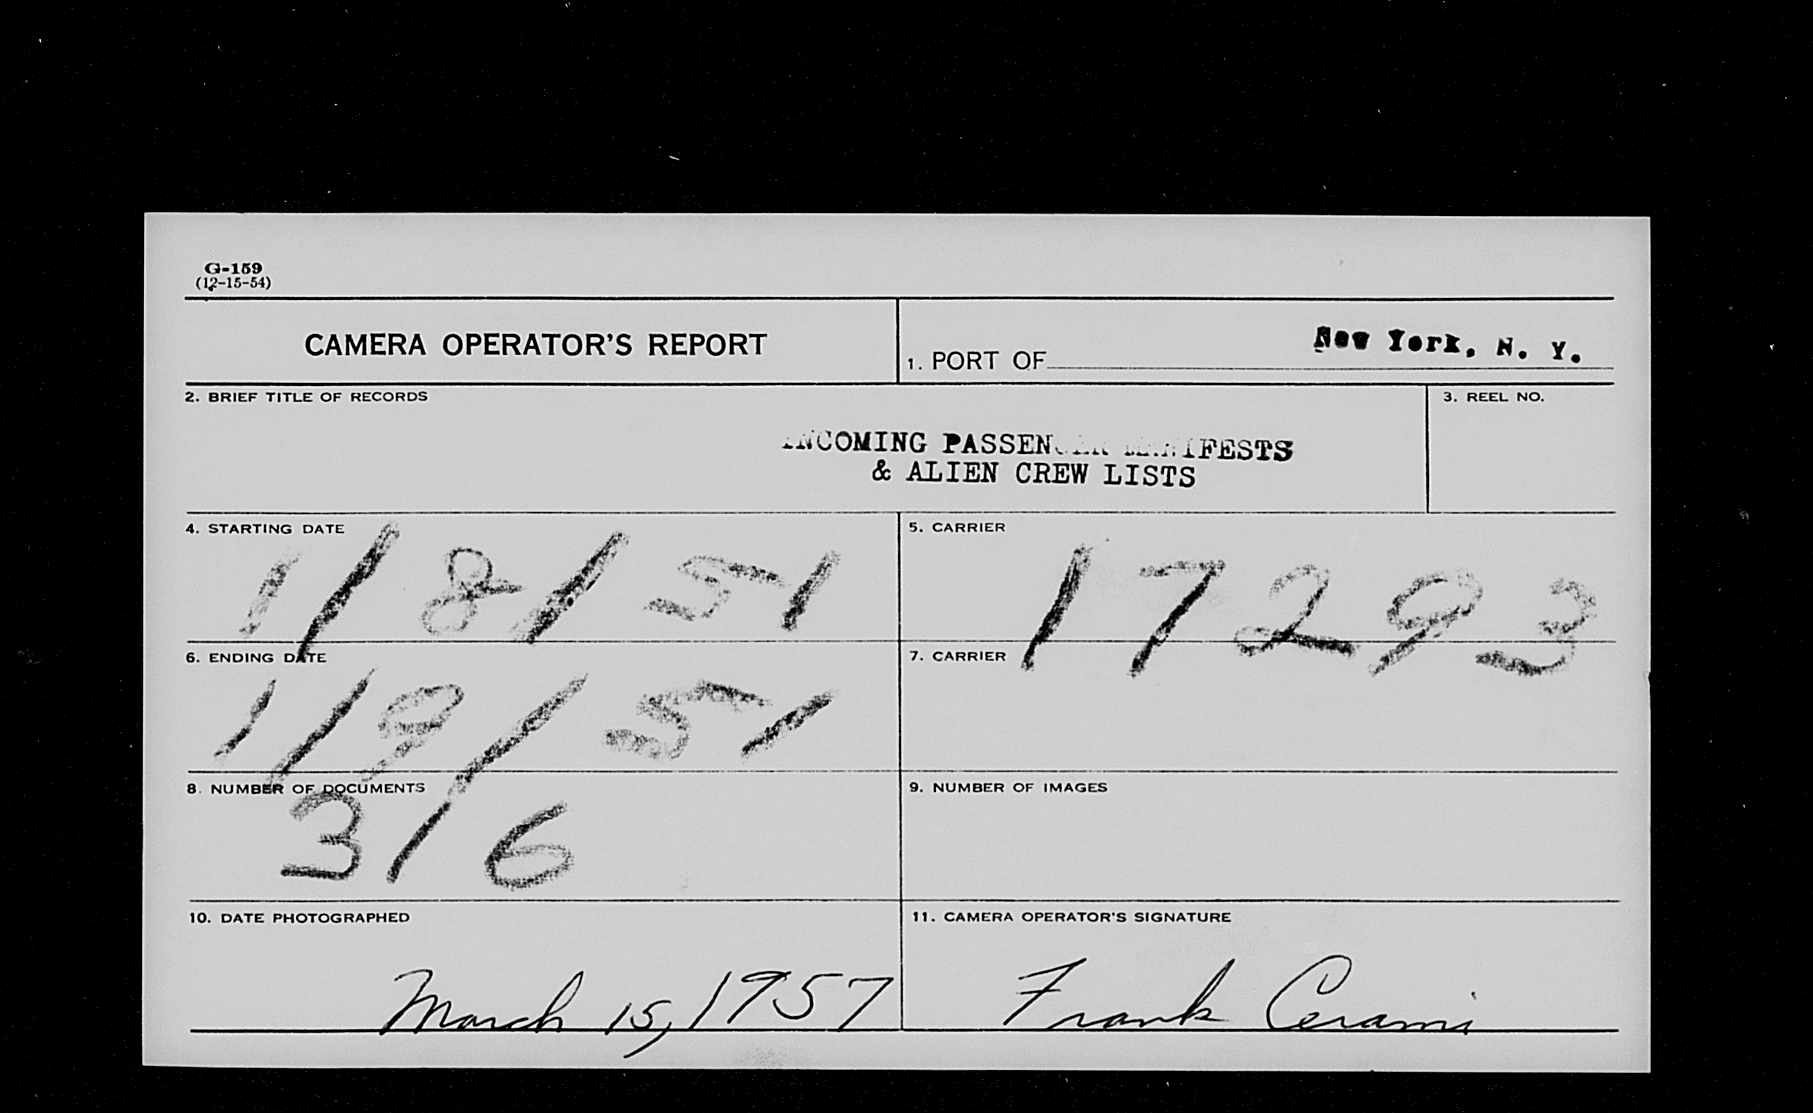 G-159
(12-15-54)
CAMERA OPERATOR'S REPORT
1. PORT OF New York, N. Y.
2. BRIEF TITLE OF RECORDS
3. REEL NO.
INCOMING PASSENGER MANIFESTS
& ALIEN CREW LISTS
4. STARTING DATE
1/8/51
5. CARRIER
17293
6. ENDING DATE
1/9/51
7. CARRIER
8. NUMBER OF DOCUMENTS
316
9. NUMBER OF IMAGES
10. DATE PHOTOGRAPHED
March 15, 1957
11. CAMERA OPERATOR'S SIGNATURE
Frank Cerami